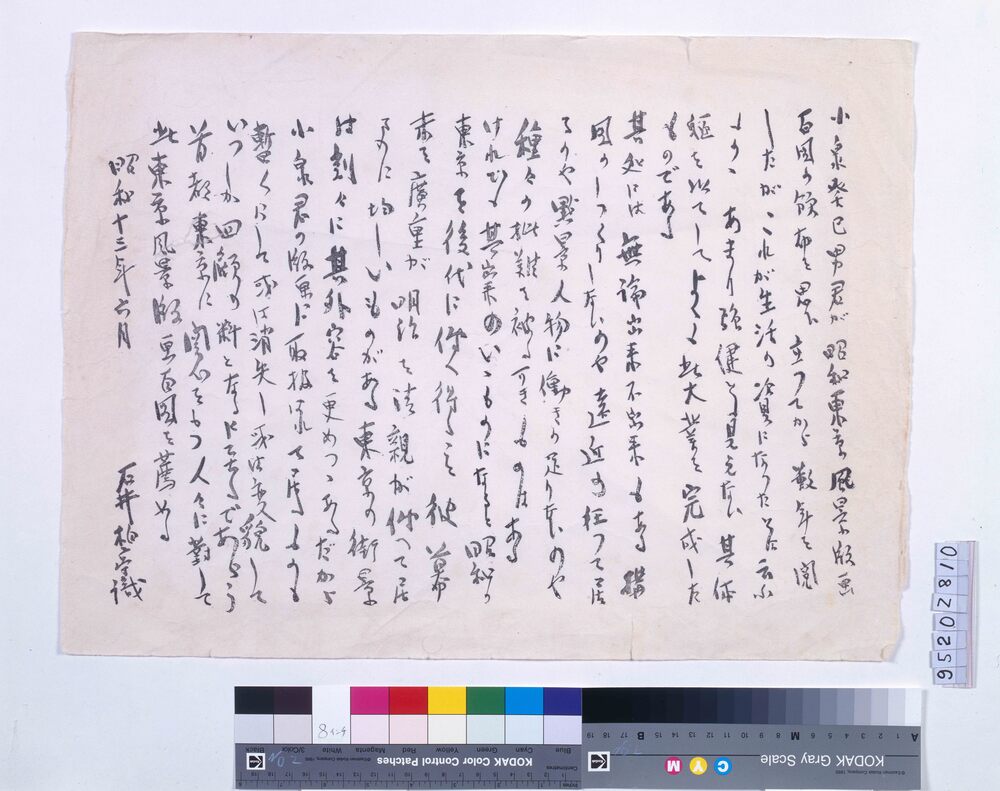 小泉癸巳男君が 昭和東京風景版画
百図の頒布を思ひ立つてから 数年を閲
したが これが生活の資になつた等に云ふ
より あまり強健とも見えない其体
躯を以てして よくも此大業を完成した
ものである
其処には 無論出来不出来もある 構
図のしつくりしないのや 遠近の狂つて居
るのや 點景人物に働きの足りないのや
種々の批難を被る可きものはある
けれども 其出来のいゝものになると 昭和の
東京を後代に伝へ得ること 彼 幕
末を廣重が 明治を清親が伝へて居
るのに 均しいものがある 東京の街景
は刻々に其外容を更めつゝあるだから
小泉君の版画に取扱はれて居るものも
暫くにして或は消失し 或は変貌して
いつしか回顧の料となるに至るであらう
首都東京に 関心をもつ人々に對して
此東京風景版画百図を薦める
昭和十三年六月
石井柏亭識
95202810
KODAK Color Control Patches
Blue Cyan Green Yellow Red Magenta White 3/Color Black
KODAK Gray Scale
C Y M
A 1 2 3 4 5 6 M 8 9 10 11 12 13 14 15 B 17 18 19